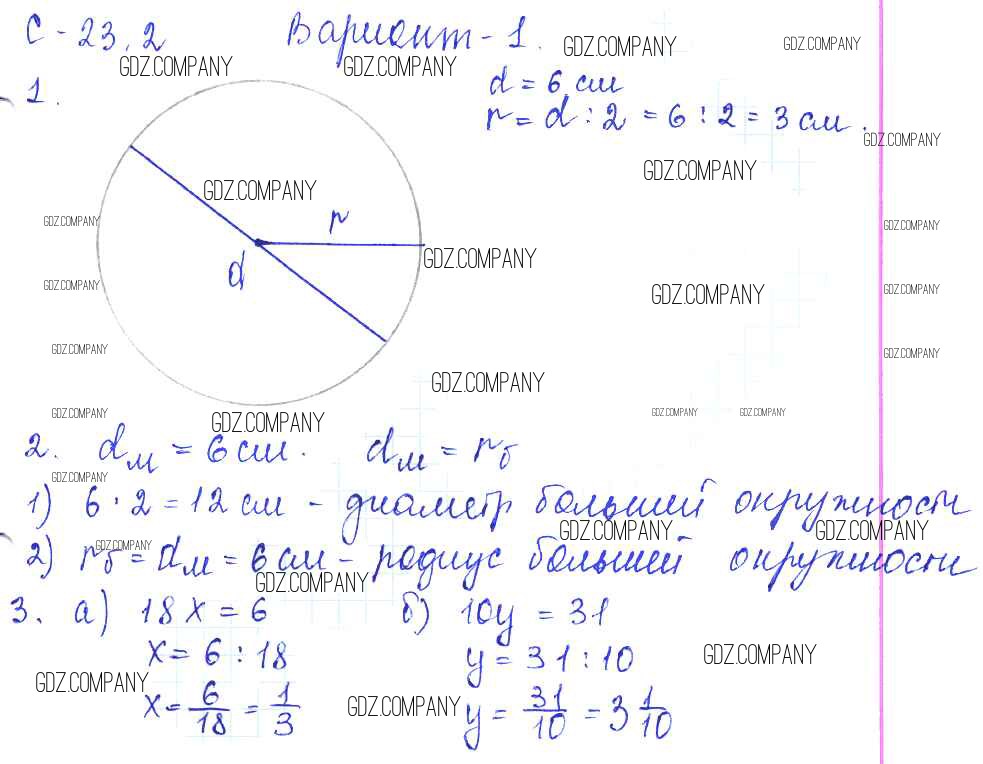 С - 23.2 Вариант - 1.
GDZ.COMPANY GDZ.COMPANY GDZ.COMPANY GDZ.COMPANY
1. d = 6 см
r = d : 2 = 6 : 2 = 3 см.
GDZ.COMPANY GDZ.COMPANY
GDZ.COMPANY
r
GDZ.COMPANY GDZ.COMPANY
d
GDZ.COMPANY
GDZ.COMPANY GDZ.COMPANY GDZ.COMPANY
GDZ.COMPANY GDZ.COMPANY
GDZ.COMPANY
GDZ.COMPANY GDZ.COMPANY GDZ.COMPANY GDZ.COMPANY
2. dм = 6 см. dм = rб
GDZ.COMPANY
1) 6 · 2 = 12 см - диаметр большей окружности
GDZ.COMPANY GDZ.COMPANY GDZ.COMPANY
2) rб = dм = 6 см - радиус большей окружности
GDZ.COMPANY
3. а) 18x = 6 б) 10y = 31
x = 6 : 18 y = 31 : 10
GDZ.COMPANY GDZ.COMPANY GDZ.COMPANY
x = 6/18 = 1/3 y = 31/10 = 3 1/10